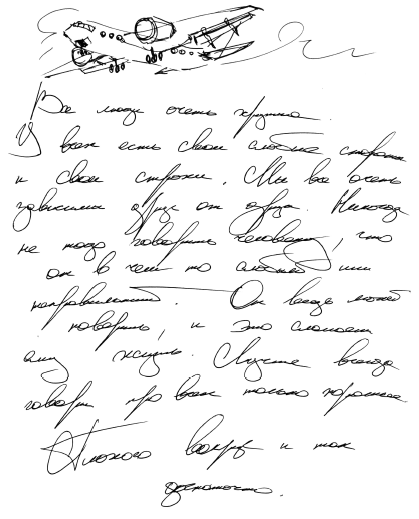 Все люди очень хрупкие.
У всех есть свои слабые стороны
и свои строки. Мы все очень
зависимы друг от друга. Никогда
не надо говорить человеку, что
он в чем то слабый или
неправильный. Он ведь может
поверить, и это сломает
ему жизнь. Лучше всегда
говори про всех только хорошее
Плохого вокруг и так
достаточно.